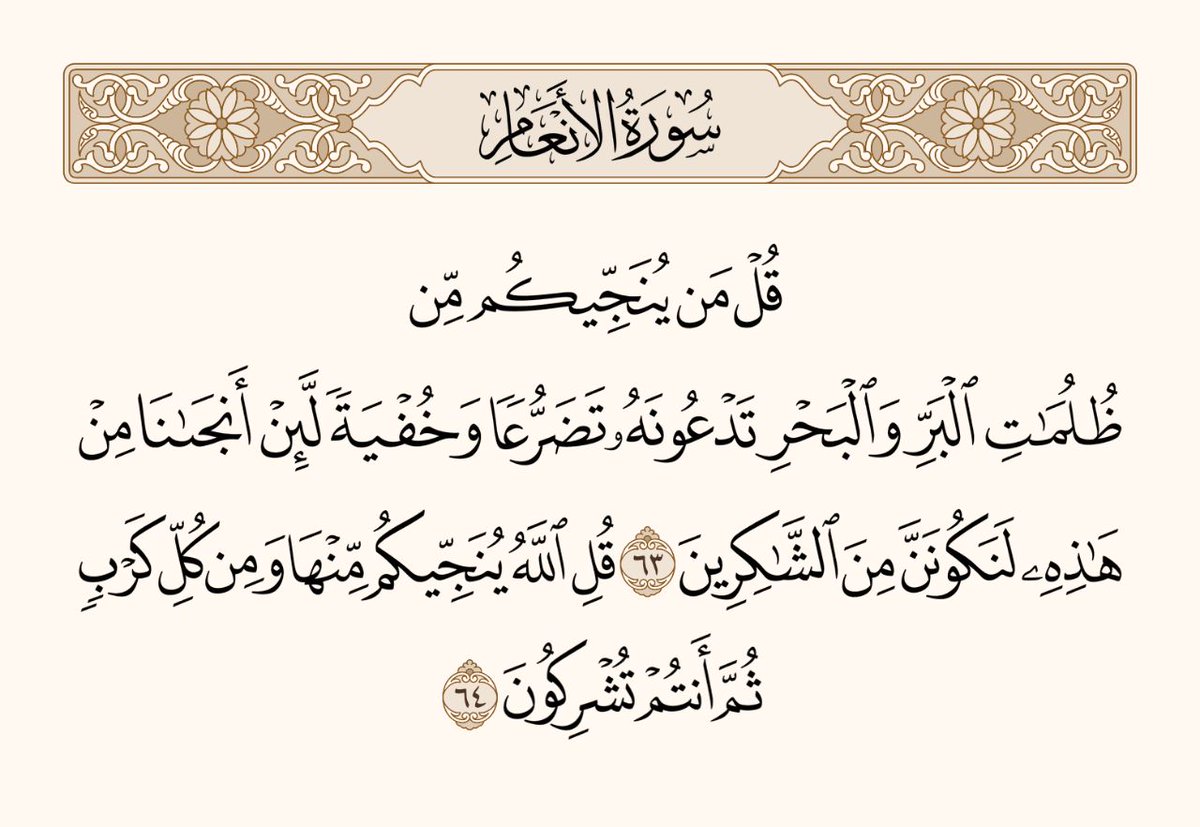 سُورَةُ الأَنْعَامِ
قُلْ مَن يُنَجِّيكُم مِّن
ظُلُمَـٰتِ ٱلْبَرِّ وَٱلْبَحْرِ تَدْعُونَهُۥ تَضَرُّعًا وَخُفْيَةً لَّئِنْ أَنجَىٰنَا مِنْ
هَـٰذِهِۦ لَنَكُونَنَّ مِنَ ٱلشَّـٰكِرِينَ ٦٣ قُلِ ٱللَّهُ يُنَجِّيكُم مِّنْهَا وَمِن كُلِّ كَرْبٍ
ثُمَّ أَنتُمْ تُشْرِكُونَ ٦٤